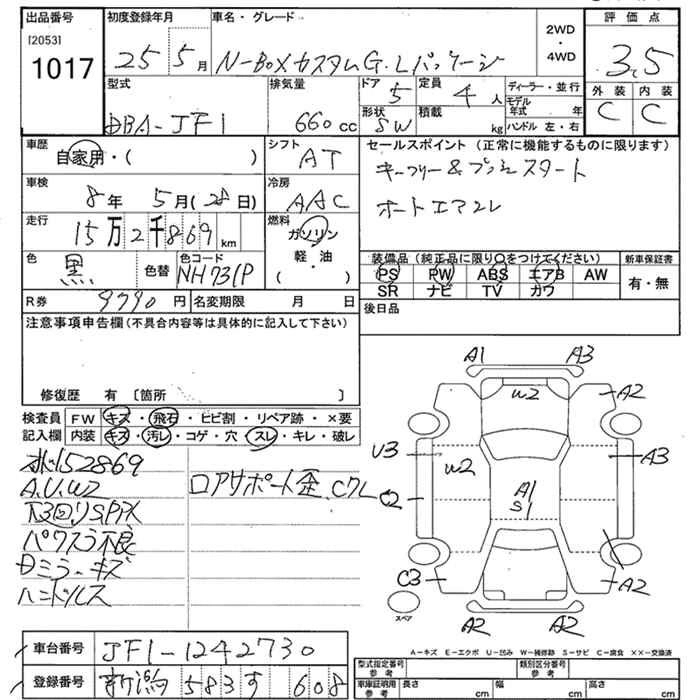 出品番号
[2053]
1017
初度登録年月
25 5月
車名・グレード
N-BOXカスタムG・Lパッケージ
2WD
・
4WD
評価点
3.5
外装 内装
C C
型式
DBA-JF1
排気量
660cc
ドア 5
形状 SW
定員 4人
積載 kg
ディーラー・並行
モデル年式 年
ハンドル 左・右
車歴
自家用・( )
シフト
AT
車検
8年 5月(28日)
冷房
AAC
走行
15万2千869km
燃料
ガソリン
軽・油
・
( )
色
黒
色替
色コード
NH731P
R券 9790円
名変期限 月 日
セールスポイント (正常に機能するものに限ります)
キーフリー&プッシュスタート
オートエアコン
装備品 (純正品に限り○をつけてください)
PS PW ABS エアB AW
SR ナビ TV カワ
新車保証書
有・無
後日品
注意事項申告欄(不具合内容等は具体的に記入して下さい)
修復歴 有 〔箇所 〕
検査員記入欄
FW キズ・飛石・ヒビ割・リペア跡・×要
内装 キズ・汚レ・コゲ・穴・スレ・キレ・破レ
152869
A.U.W2
パワスラ不良
Dミラーキズ
ハンドルスレ
ロアサポート歪.Cクレ
A1 A3
W2
A2
U3
W2
A3
C2
A1
S1
C3
A2
A2 A2
スペア
A-キズ E-エクボ U-凹み W-補修跡 S-サビ C-腐食 ××-交換済
車台番号 JF1-1242730
登録番号 新潟 583す 608
型式指定番号 参考
類別区分番号 参考
車庫証明用 参考
長さ cm
幅 cm
高さ cm